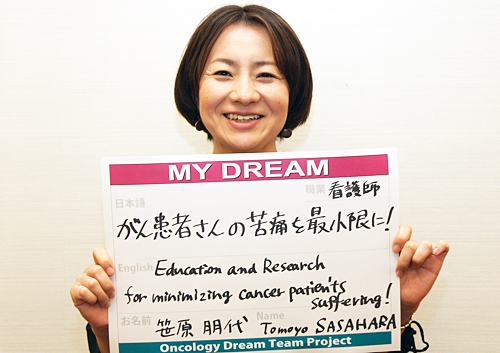 MY DREAM
日本語 職業 看護師
がん患者さんの苦痛を最小限に!
English Education and Research
for minimizing cancer patient's
suffering!
お名前 笹原 朋代 Name Tomoyo SASAHARA
Oncology Dream Team Project